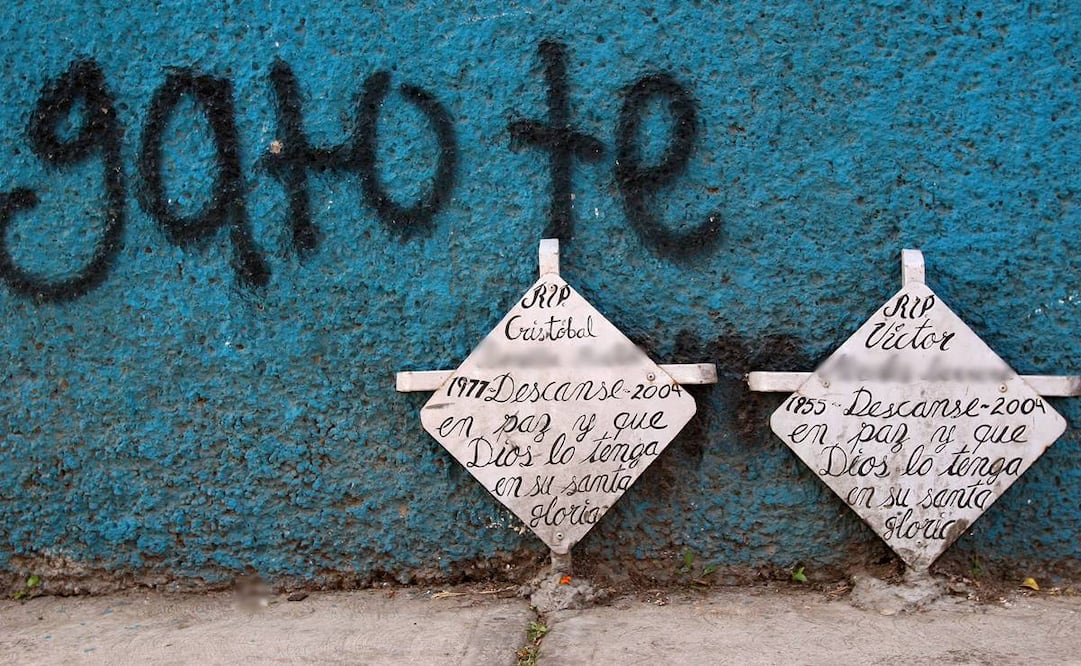 gato te
RIP
Cristóbal
1977-Descanse-2004
en paz y que
Dios lo tenga
en su santa
gloria
RIP
Victor
1955-Descanse-2004
en paz y que
Dios lo tenga
en su santa
gloria